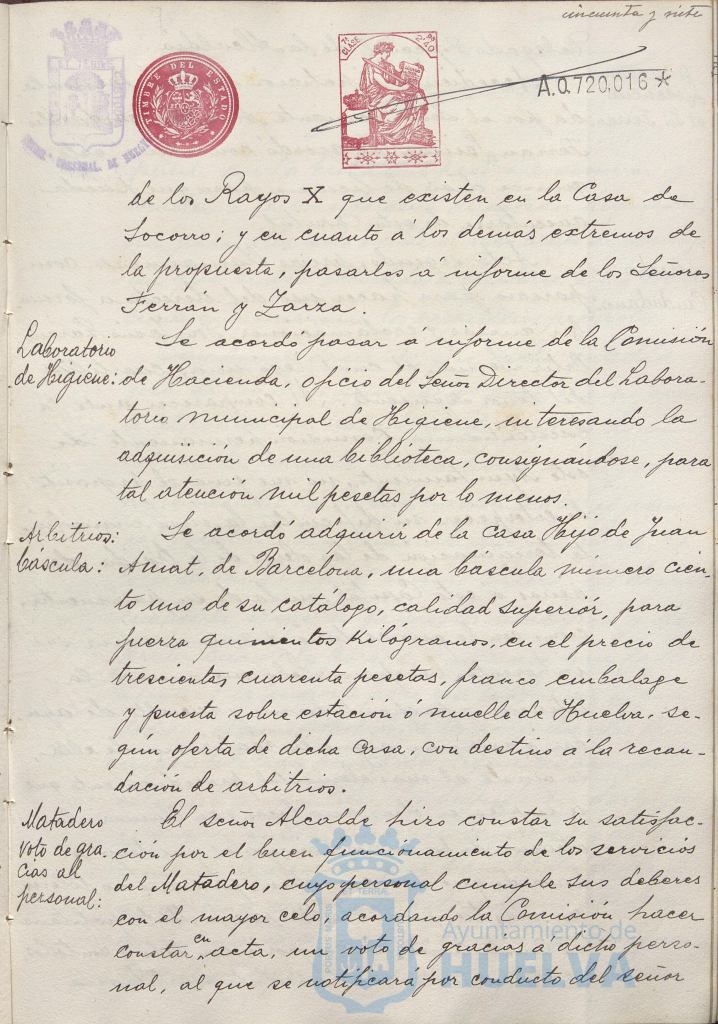 cincuenta y siete
TIMBRE DEL ESTADO
7ª CLASE
Pts 2'40
A.0.720.016 *
de los Rayos X que existen en la Casa de
Socorro; y en cuanto á los demás extremos de
la propuesta, pasarlos á informe de los Señores
Ferrán y Zarza.
Laboratorio
de Higiene:
Se acordó pasar á informe de la Comisión
de Hacienda, oficio del Señor Director del Labora-
torio municipal de Higiene, interesando la
adquisición de una biblioteca, consignándose, para
tal atención mil pesetas por lo menos.
Arbitrios:
báscula:
Se acordó adquirir de la casa Hijo de Juan
Amat, de Barcelona, una báscula número cien-
to uno de su catálogo, calidad superiór, para
fuerza quinientos kilógramos, en el precio de
trescientas cuarenta pesetas, franco embalage
y puesta sobre estación ó muelle de Huelva, se-
gún oferta de dicha casa, con destino á la recau-
dación de arbitrios.
Matadero
voto de gra-
cias al
personal:
El señor Alcalde hizo constar su satisfac-
ción por el buen funcionamiento de los servicios
del Matadero, cuyo personal cumple sus deberes
con el mayor celo, acordando la Comisión hacer
constar en acta, un voto de gracias á dicho perso-
nal, al que se notificará por conducto del señor
Ayuntamiento de
HUELVA